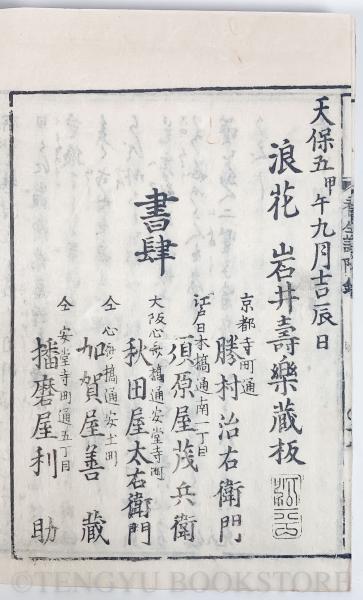 天保五甲午九月吉辰日
浪花 岩井壽樂藏板
書肆
京都寺町通
勝村治右衛門
江戸日本橋通南一丁目
須原屋茂兵衛
大阪心斎橋通安堂寺町
秋田屋太右衛門
仝 心斎橋通安土町
加賀屋善藏
仝 安堂寺町通五丁目
播磨屋利助
©TENGYU BOOKSTORE